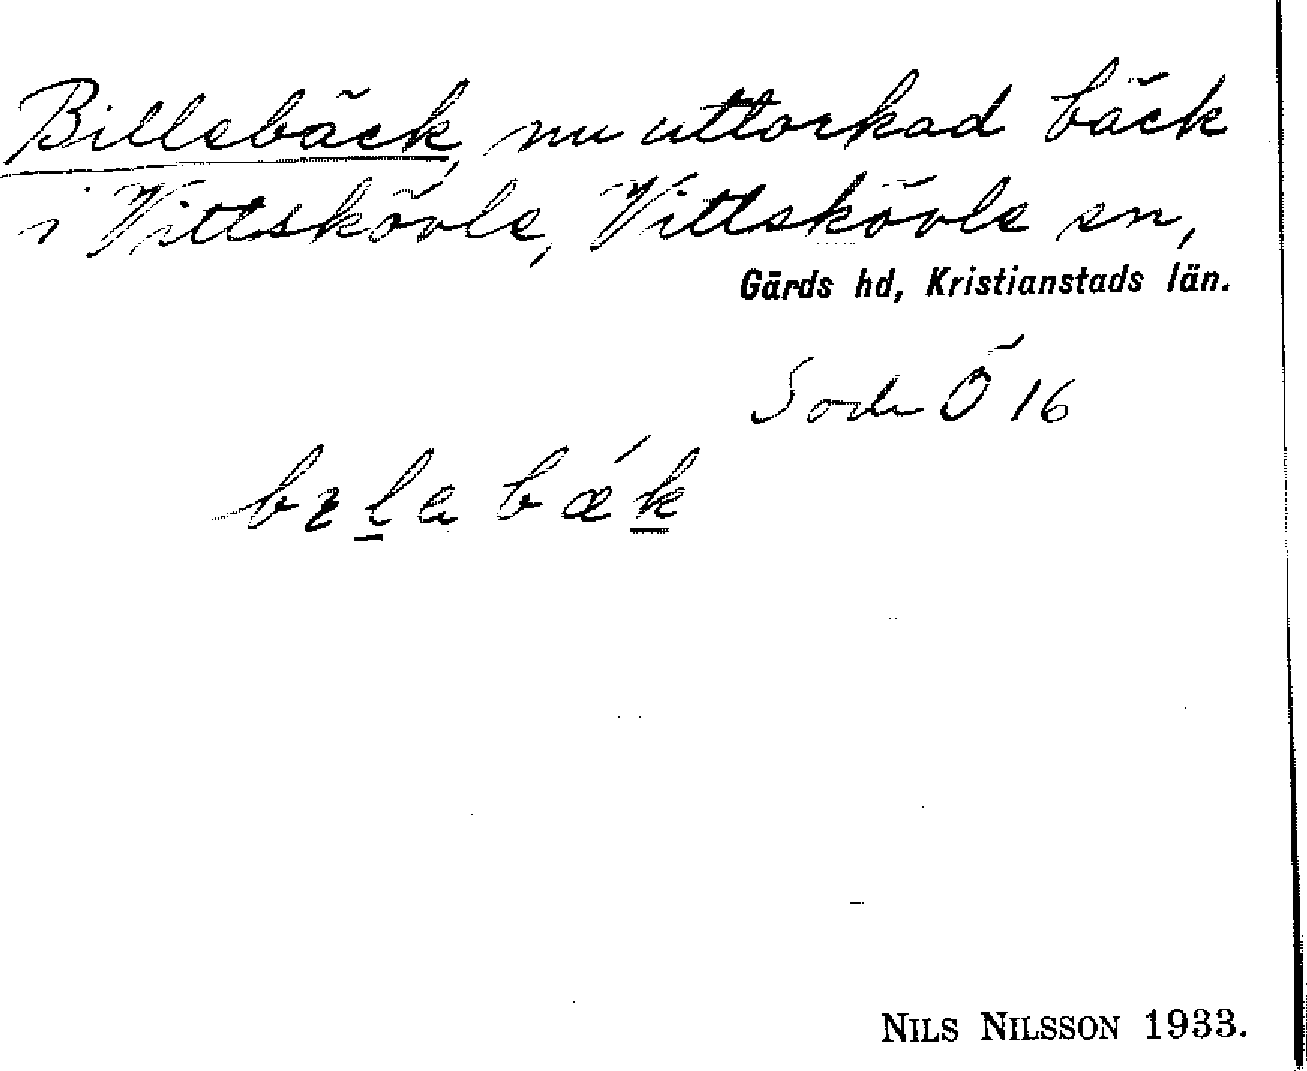 Billebäck, nu uttorkad bäck
i Vittskövle, Vittskövle sn,
Gärds hd, Kristianstads län.
Ö 16
NILS NILSSON 1933.